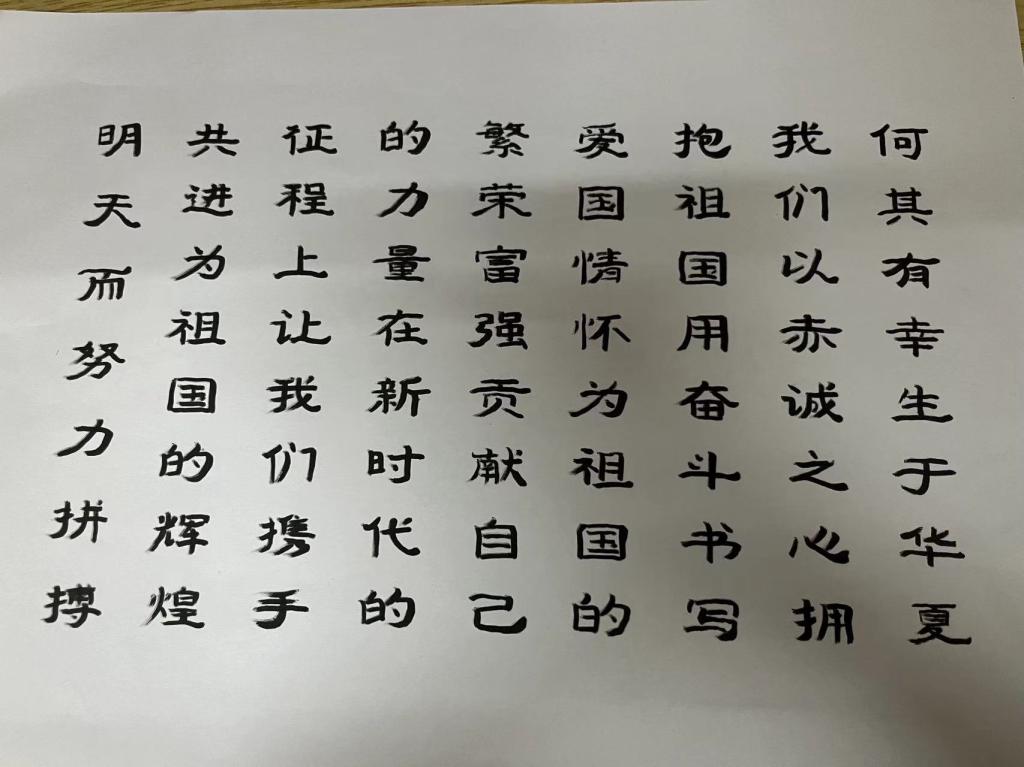 何其有幸生于华夏
我们以赤诚之心拥
抱祖国用奋斗书写
爱国情怀为祖国的
繁荣富强贡献自己
的力量在新时代的
征程上让我们携手
共进为祖国的辉煌
明天而努力拼搏